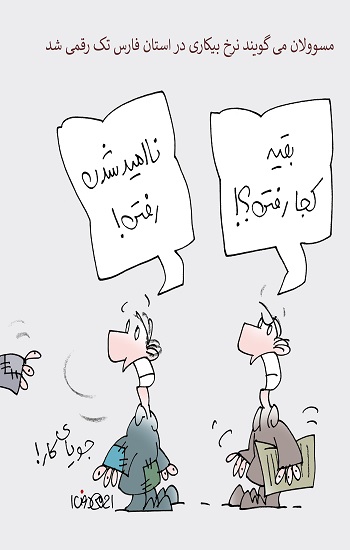 مسوولان می گویند نرخ بیکاری در استان فارس تک رقمی شد
بقیه
کجا رفتن؟!
ناامید شدن
رفتن!
جویای کار!